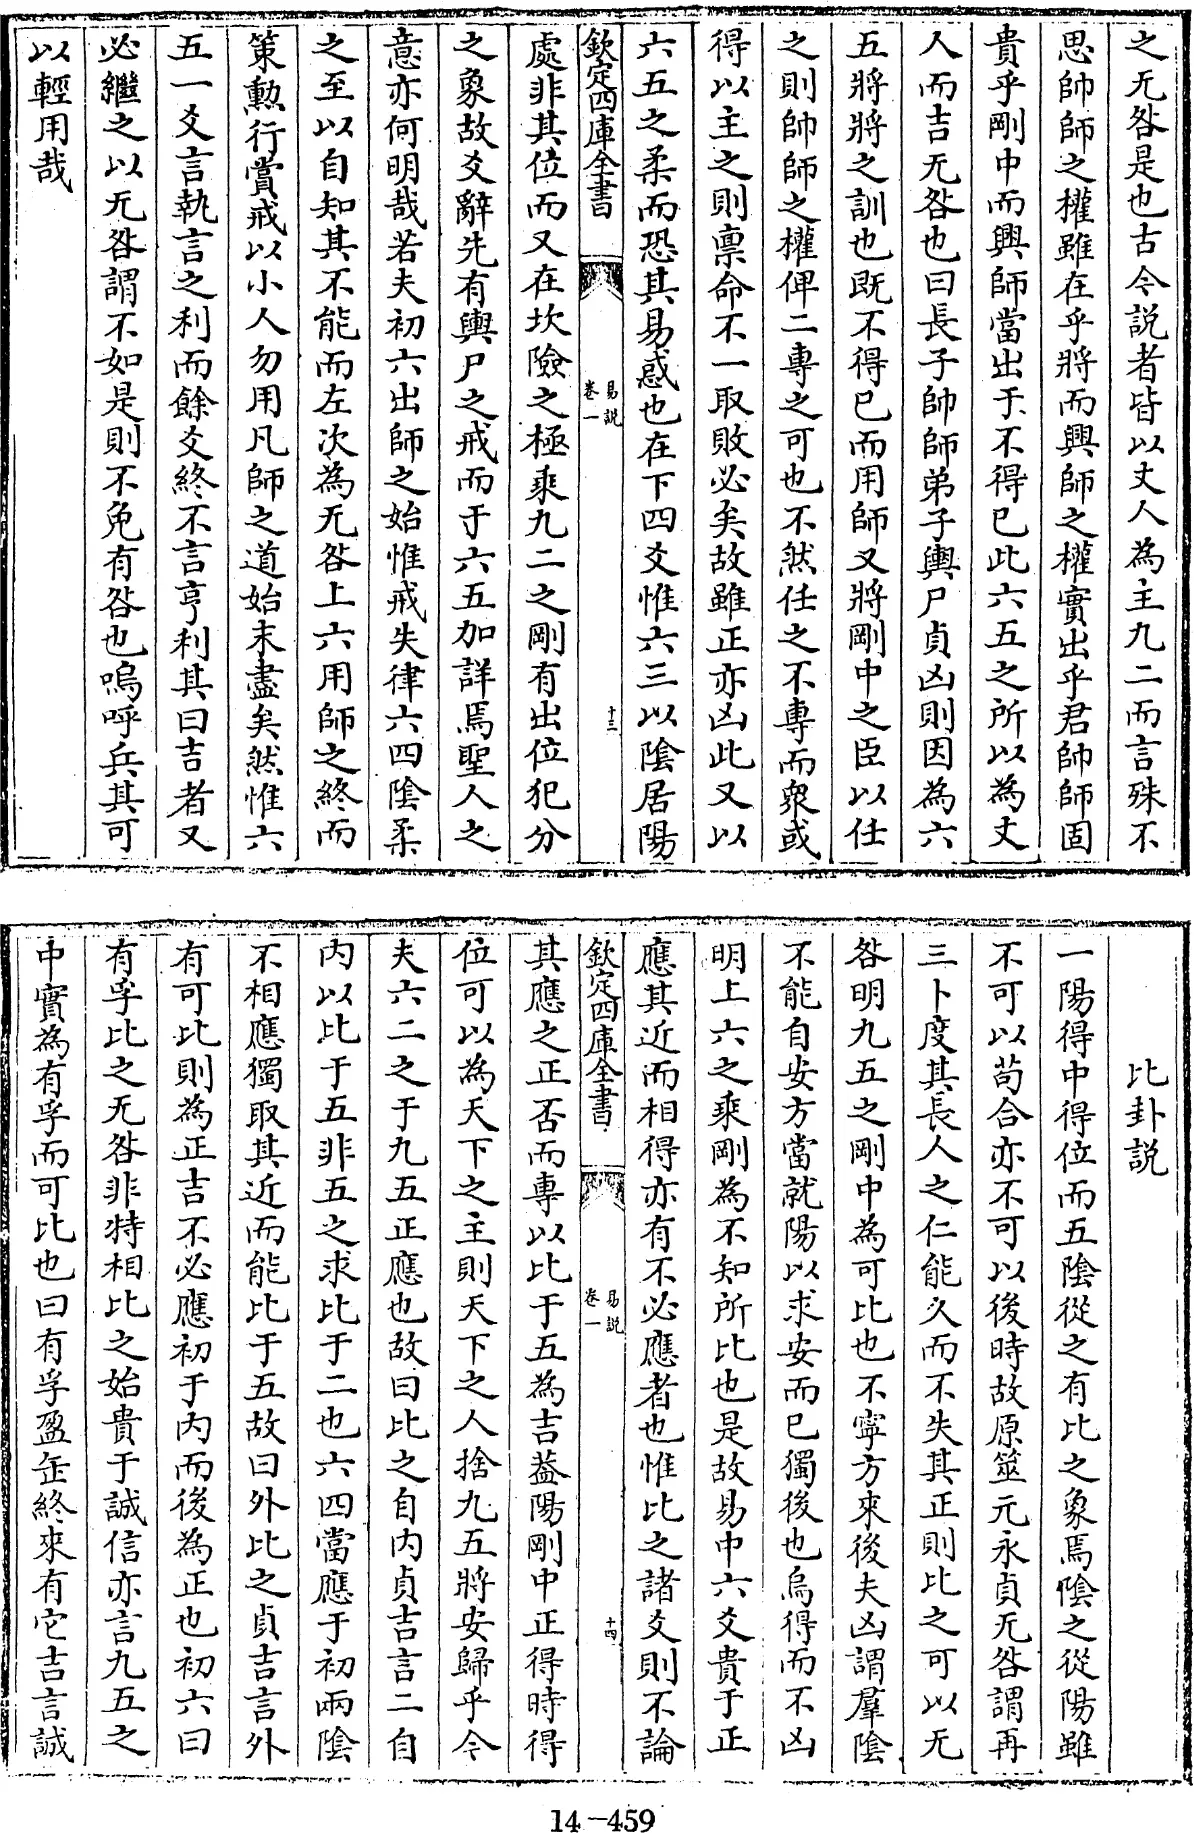 之无咎是也古今説者皆以丈人為主九二而言殊不
思帥師之權雖在乎將而興師之權實出乎君帥師固
貴乎剛中而興師當出于不得已此六五之所以為丈
人而吉无咎也曰長子帥師弟子輿尸貞凶則因為六
五將將之訓也既不得已而用師又將剛中之臣以任
之則帥師之權俾二專之可也不然任之不專而衆或
得以主之則禀命不一取敗必矣故雖正亦凶此又以
六五之柔而恐其易惑也在下四爻惟六三以陰居陽
欽定四庫全書
易説
卷一
十三
處非其位而又在坎險之極乘九二之剛有出位犯分
之象故爻辭先有輿尸之戒而于六五加詳焉聖人之
意亦何明哉若夫初六出師之始惟戒失律六四陰柔
之至以自知其不能而左次為无咎上六用師之終而
策勳行賞戒以小人勿用凡師之道始末盡矣然惟六
五一爻言執言之利而餘爻終不言亨利其曰吉者又
必繼之以无咎謂不如是則不免有咎也嗚呼兵其可
以輕用哉
比卦説
一陽得中得位而五陰從之有比之象焉陰之從陽雖
不可以苟合亦不可以後時故原筮元永貞无咎謂再
三卜度其長人之仁能久而不失其正則比之可以无
咎明九五之剛中為可比也不寧方來後夫凶謂羣陰
不能自安方當就陽以求安而已獨後也烏得而不凶
明上六之乘剛為不知所比也是故易中六爻貴于正
應其近而相得亦有不必應者也惟比之諸爻則不論
欽定四庫全書
易説
卷一
十四
其應之正否而專以比于五為吉葢陽剛中正得時得
位可以為天下之主則天下之人捨九五將安歸乎今
夫六二之于九五正應也故曰比之自内貞吉言二自
内以比于五非五之求比于二也六四當應于初兩陰
不相應獨取其近而能比于五故曰外比之貞吉言外
有可比則為正吉不必應初于内而後為正也初六曰
有孚比之无咎非特相比之始貴于誠信亦言九五之
中實為有孚而可比也曰有孚盈缶終來有它吉言誠
14-459